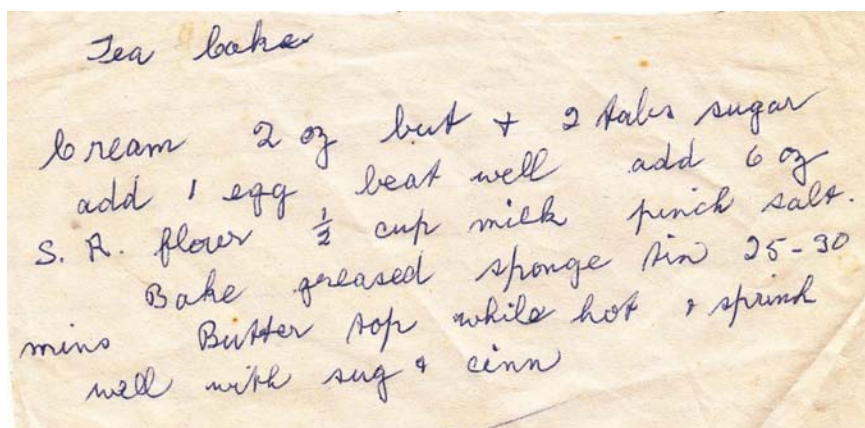 Tea Cake
Cream 2 oz but + 2 tabs sugar
add 1 egg beat well add 6 oz
S. R. flour ½ cup milk pinch salt.
Bake greased sponge tin 25-30
mins Butter top while hot & sprink
well with sug & cinn